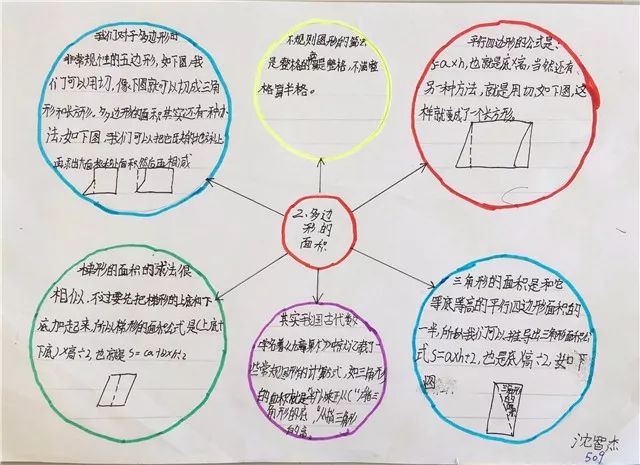 我们对于多边形可
非常规性的五边形,如下图,我
们可以用切,像下图就可以切成三角
形和长方形。多边形的面积其实还有一种办
法,如下图,我们可以把它
然后再相减
不规则图形的算法
是整格的算整格,不满整
格算半格。
平行四边形的公式是:
S=a×h,也就是底×高,当然还有
另一种方法,就是用切,如下图,这
样就变成了一个长方形。
2.多边
形的
面积
梯形的面积的求法很
相似,不过要先把梯形的上底和下
底加起来,所以梯形的面积公式是(上底+
下底)×高÷2,也就是S=(a+b)×h÷2
其实我国古代数
学名著
一些常规图形的计算式,如三角形
的面积就是
三角形的底,
的高。
三角形的面积是和它
等底等高的平行四边形面积的
一半,所以我们可以推导出三角形面积公
式S=a×h÷2,也是底×高÷2,如下
图
沈智杰
509